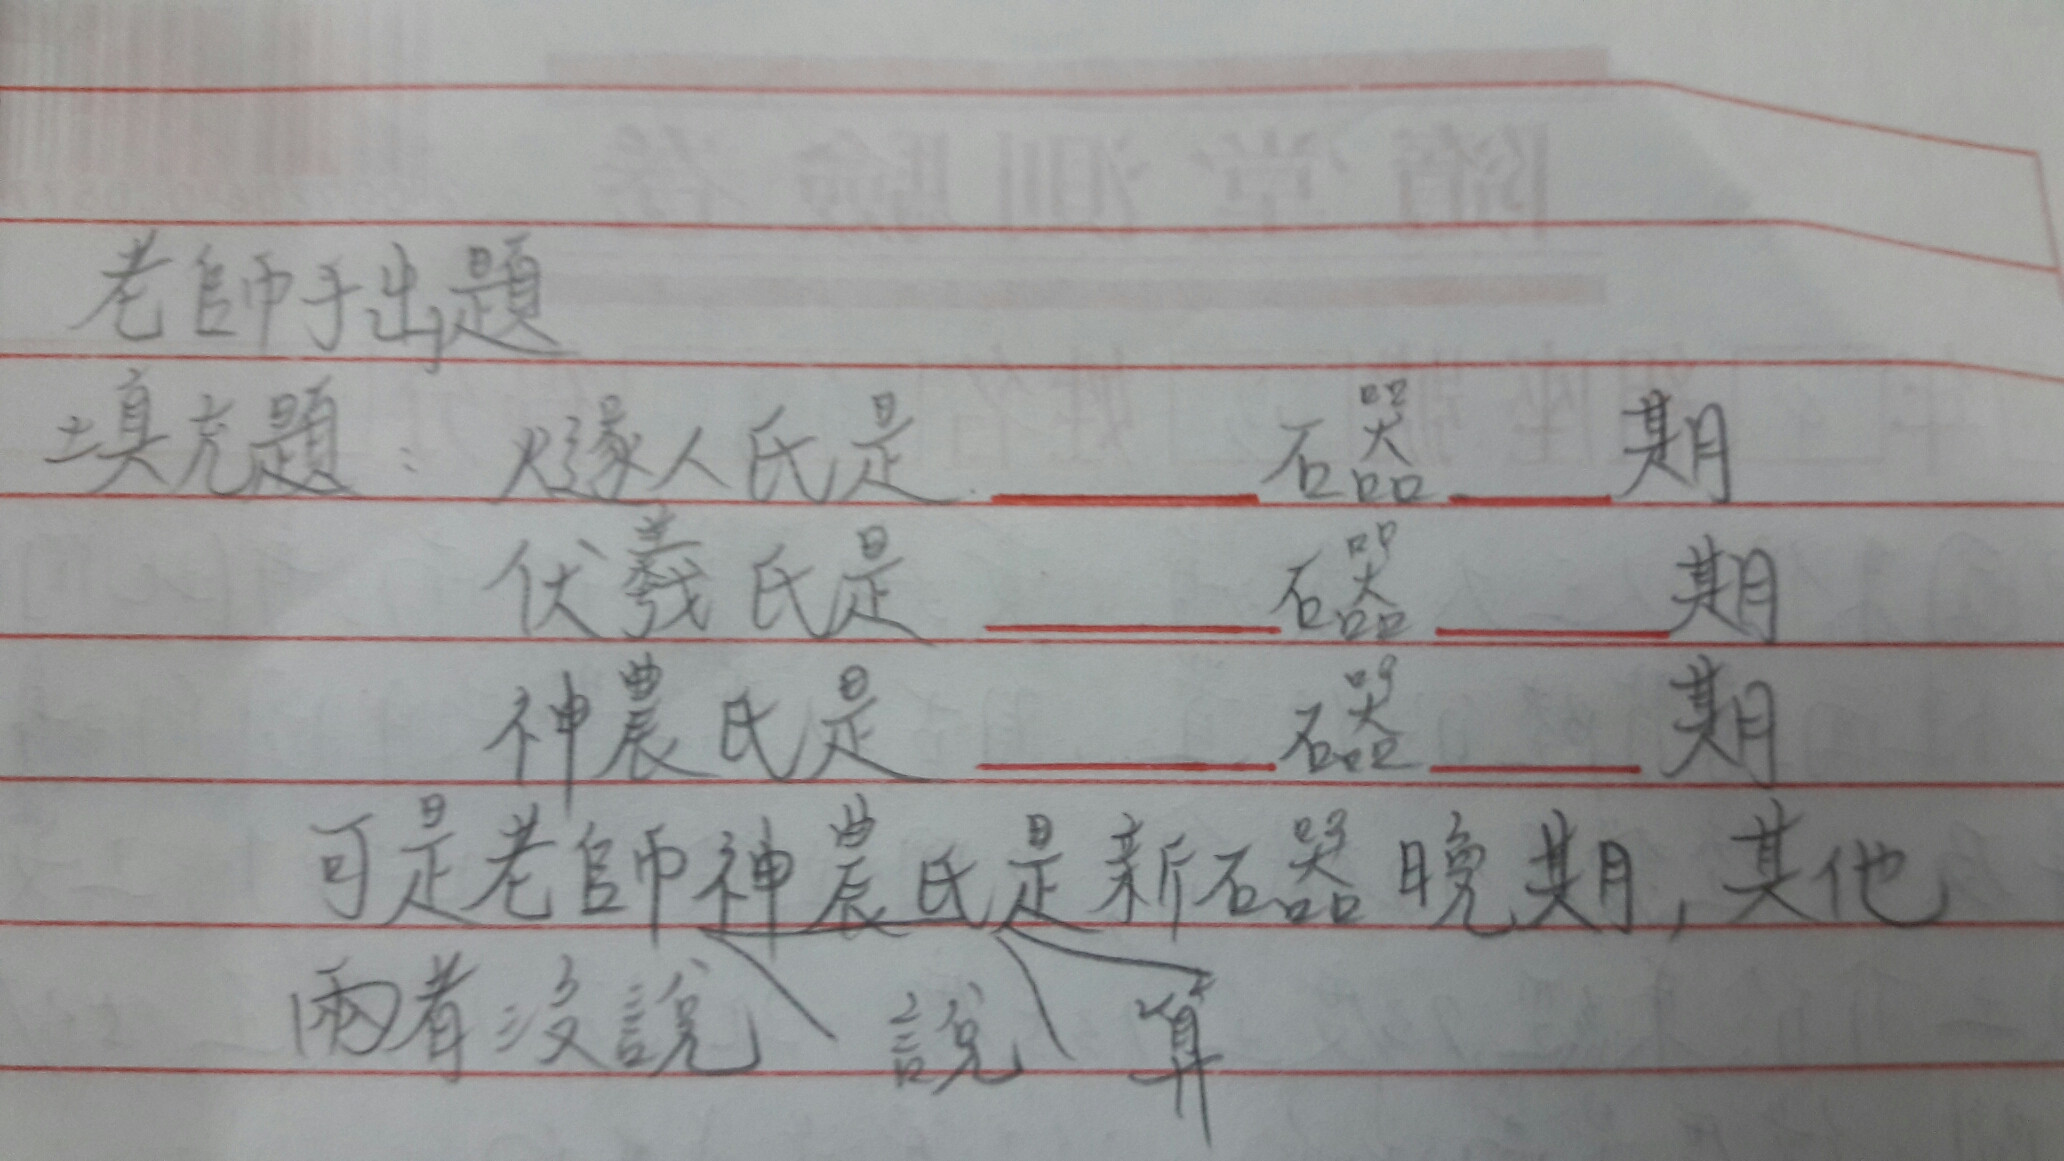 隨堂測驗卷
老師手出題
填充題：燧人氏是＿＿＿石器＿＿期
伏羲氏是＿＿＿石器＿＿期
神農氏是＿＿＿石器＿＿期
可是老師神農氏是新石器晚期，其他
兩者沒說
說 算